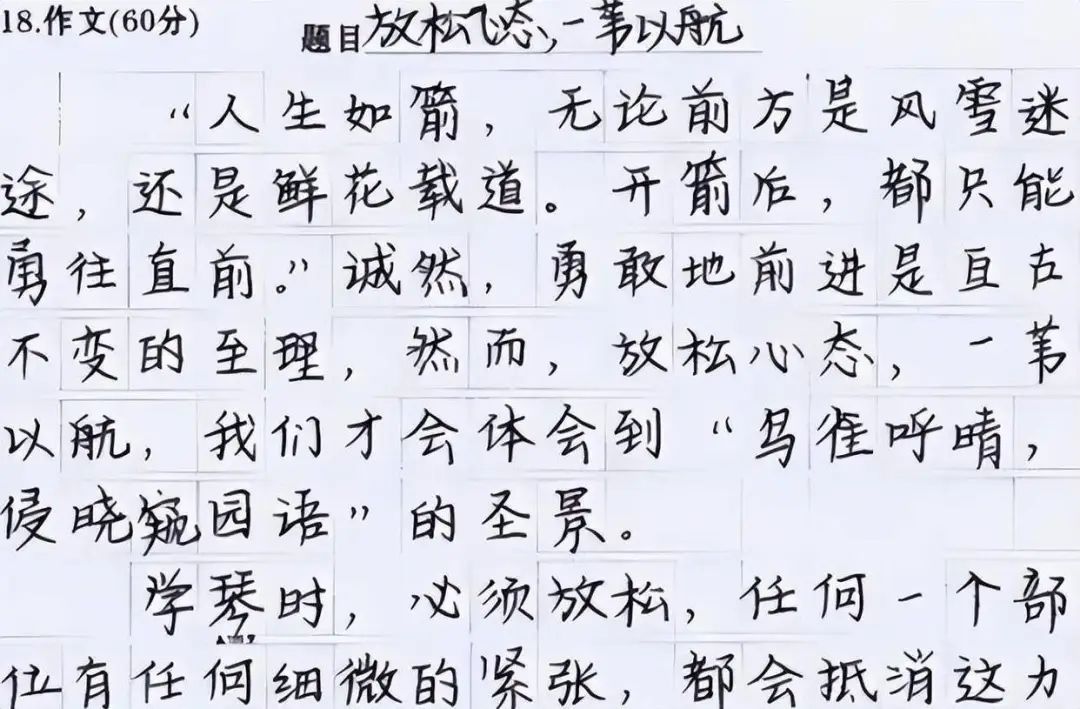 18.作文(60分) 题目 放松心态,一苇以航
“人生如箭，无论前方是风雪迷
途，还是鲜花载道。开箭后，都只能
勇往直前。”诚然，勇敢地前进是亘古
不变的至理，然而，放松心态，一苇
以航，我们才会体会到“鸟雀呼晴，
侵晓窥园语”的圣景。
学琴时，必须放松，任何一个部
位有任何细微的紧张，都会抵消这力